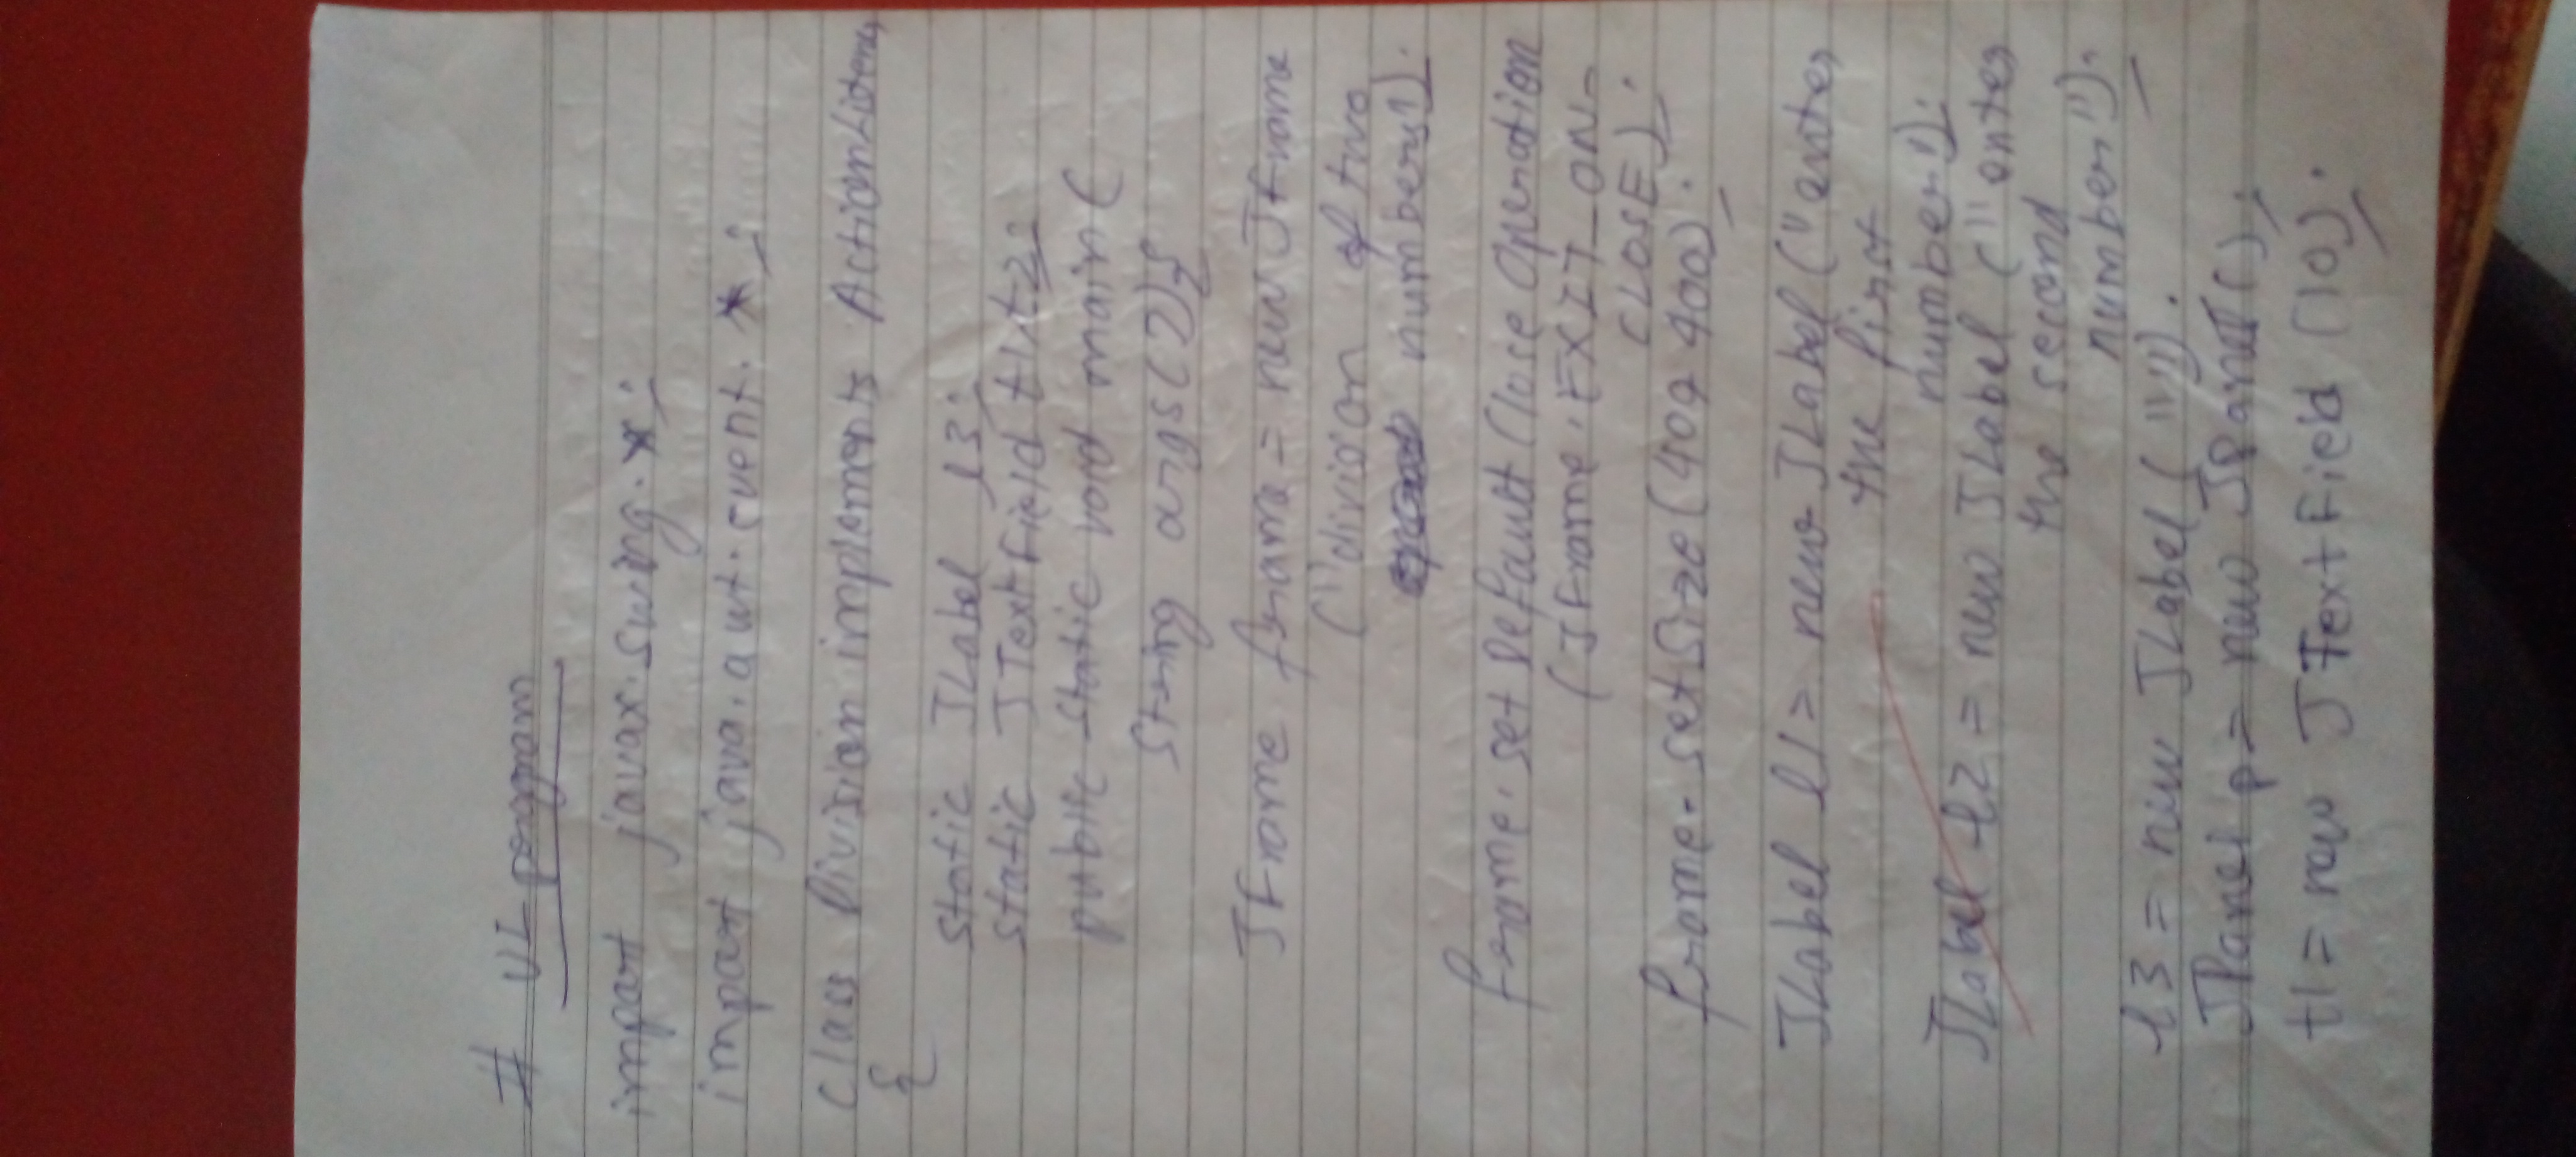 # UI porggram
import javax.swing.*;
import java.awt.event.*;
class Division implements ActionListener
{
static JLabel l3;
static JTextField t1,t2;
public static void main(
String args[]){
JFrame frame = new JFrame
("division of two
numbers");
frame.setDefaultCloseOperation
(JFrame.EXIT_ON_
CLOSE);
frame.setSize(400,400);
JLabel l1= new JLabel ("enter
the first
number");
JLabel l2 = new JLabel ("enter
the second
number");
l3 = new JLabel ("");
JPanel p= new JPanel();
t1= new JTextField (10);